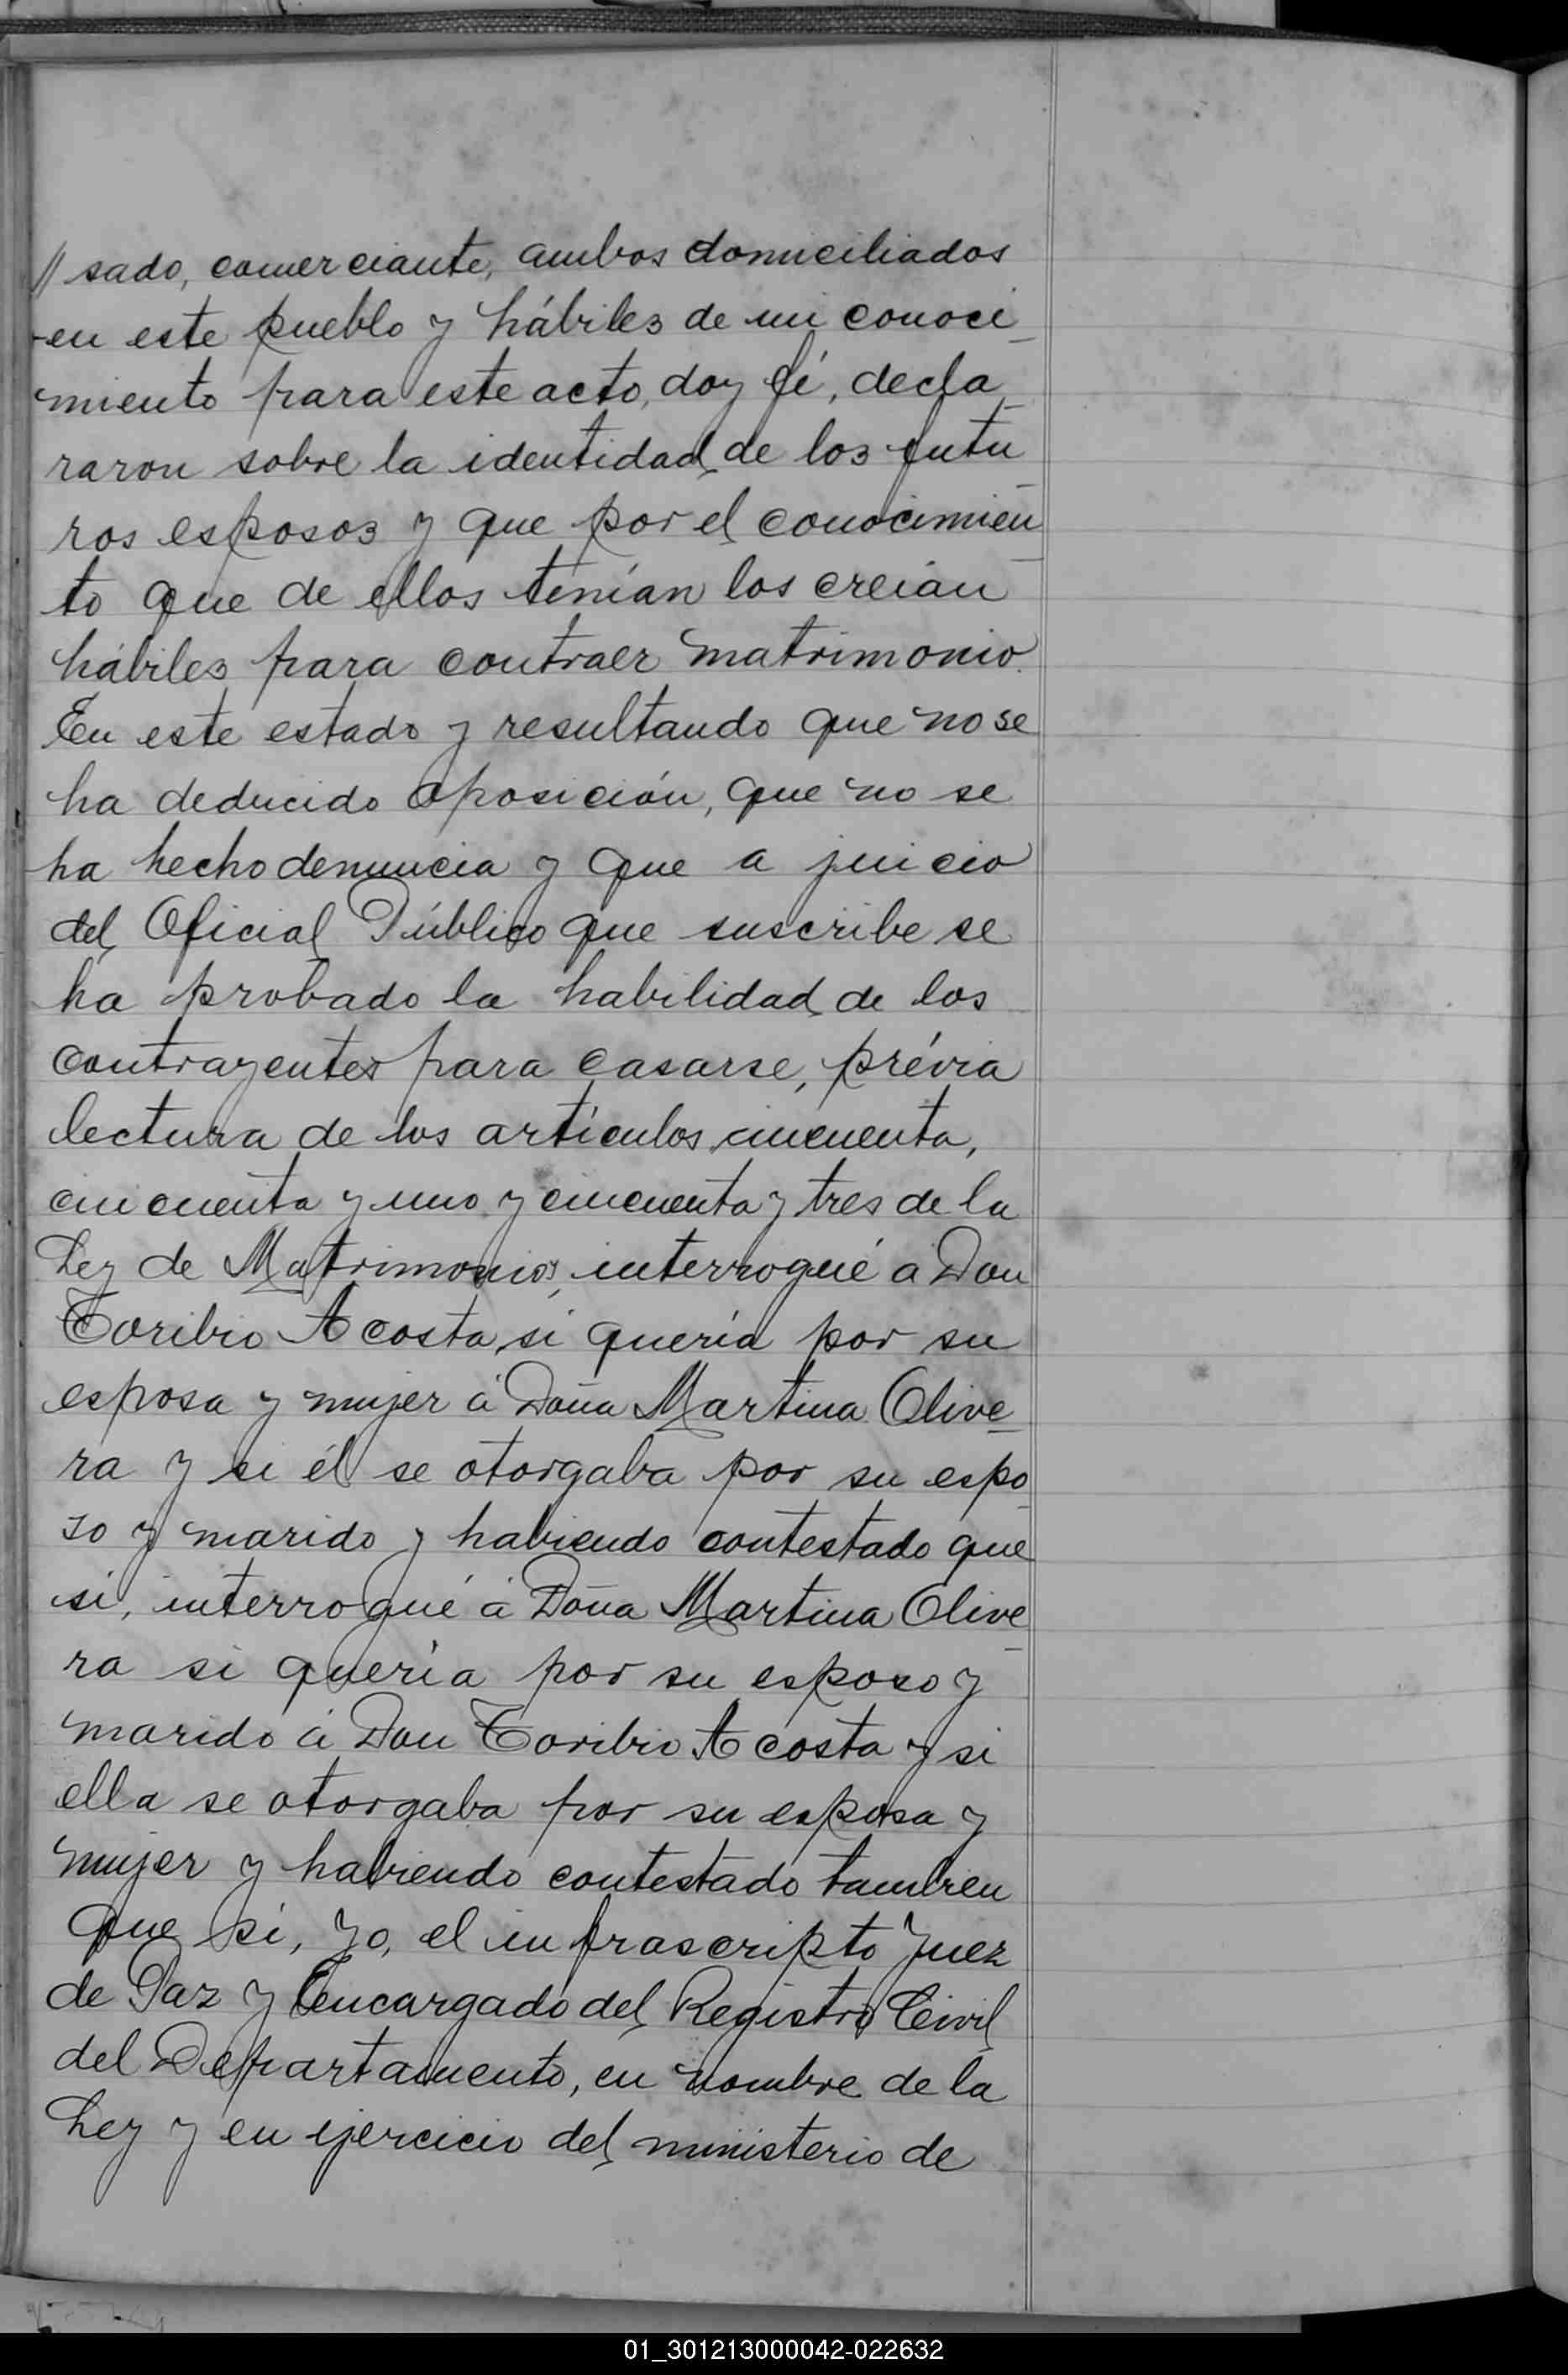 // sado, comerciante, ambos domiciliados
en este pueblo y hábiles de mi conoci_
miento para este acto, doy fé, decla_
raron sobre la identidad de los futu_
ros esposos y que por el conocimien_
to que de ellos tenían los creían
hábiles para contraer matrimonio.
En este estado y resultando que no se
ha deducido oposición, que no se
ha hecho denuncia y que a juicio
del Oficial Público que suscribe se
ha probado la habilidad de los
contrayentes para casarse, prévia
lectura de los artículos cincuenta,
cincuenta y uno y cincuenta y tres de la
Ley de Matrimonio, interrogué á Don
Toribio Acosta, si quería por su
esposa y mujer á Doña Martina Olive_
ra y si él se otorgaba por su espo_
so y marido y habiendo contestado que
si, interrogué á Doña Martina Olive_
ra si quería por su esposo y
marido á Don Toribio Acosta y si
ella se otorgaba por su esposa y
mujer y habiendo contestado tambien
que si, Yo, el infrascripto Juez
de Paz y Encargado del Registro Civil
del Departamento, en nombre de la
Ley y en ejercicio del ministerio de
01_301213000042-022632